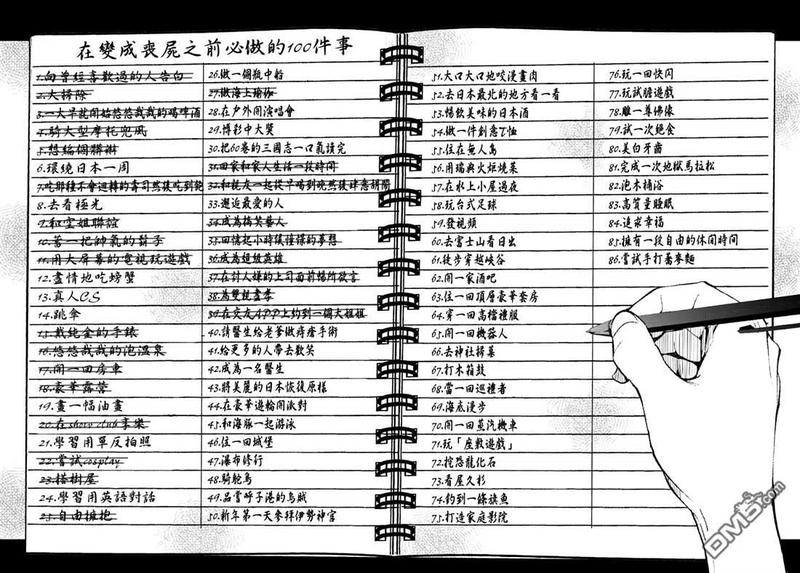 在變成喪屍之前必做的100件事
1.向曾經喜歡過的人告白
2.大掃除
3.一大早就開始悠悠哉哉的喝啤酒
4.騎大型摩托兜風
5.想給個聯謝
6.環繞日本一周
7.吃那種不會迴轉的壽司然後吃到飽
8.去看極光
9.和空姐聯誼
10.蓄一把帥氣的鬍子
11.用大屏幕的電視玩遊戲
12.盡情地吃螃蟹
13.真人CS
14.跳傘
15.戴純金的手錶
16.悠悠哉哉的泡溫泉
17.開一回房車
18.豪華露營
19.畫一幅油畫
20.在show club享樂
21.學習用單反拍照
22.嘗試cosplay
23.搭樹屋
24.學習用英語對話
25.自由擁抱
26.做一個瓶中船
27.做海上瑜伽
28.在戶外開演唱會
29.博彩中大獎
30.把60卷的三國志一口氣讀完
31.回家和家人生活一段時間
32.和親友一起從早喝到晚然後肆意胡鬧
33.邂逅最愛的人
34.成為搞笑藝人
35.回憶起小時候憧憬的夢想
36.成為超級英雄
37.在討人嫌的上司面前暢所欲言
38.為雙親盡孝
39.在交友APP上約到一個大姐姐
40.請醫生給老爹做痔瘡手術
41.給更多的人帶去歡笑
42.成為一名醫生
43.將美麗的日本恢復原樣
44.在豪華遊輪開派對
45.和海豚一起游泳
46.住一回城堡
47.瀑布修行
48.騎鴕鳥
49.品嘗呼子港的烏賊
50.新年第一天參拜伊勢神宮
51.大口大口地咬漫畫肉
52.去日本最北的地方看一看
53.暢飲美味的日本酒
54.做一件創意T恤
55.住在無人島
56.用瑞典火炬燒菜
57.在水上小屋過夜
58.玩台式足球
59.發視頻
60.去富士山看日出
61.徒步穿越峽谷
62.開一家酒吧
63.住一回頂層豪華套房
64.穿一回高檔禮服
65.開一回機器人
66.去神社掃墓
67.打木箱鼓
68.當一回巡禮者
69.海底漫步
70.開一回蒸汽機車
71.玩「座敷遊戲」
72.挖恐龍化石
73.看屋久杉
74.釣到一條旗魚
75.打造家庭影院
76.玩一回快閃
77.玩試膽遊戲
78.雕一尊佛像
79.試一次絶食
80.美白牙齒
81.完成一次地獄馬拉松
82.泡木桶浴
83.高質量睡眠
84.追求幸福
85.擁有一段自由的休閒時間
86.嘗試手打蕎麥麵
DM5.com